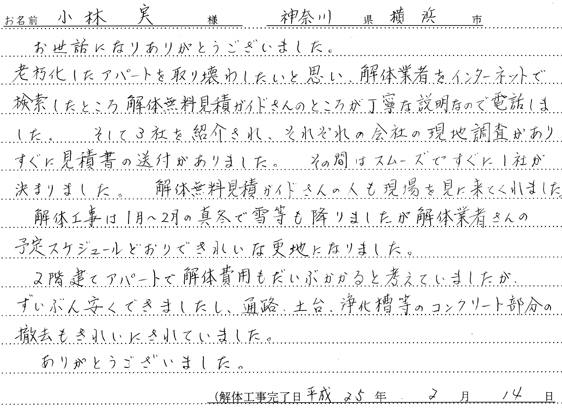 お名前 小林 実 様 神奈川 県 横浜 市
お世話になりありがとうございました。
老朽化したアパートを取り壊わしたいと思い、解体業者をインターネットで
検索したところ解体無料見積ガイドさんのところが丁寧な説明なので電話しま
した。 そして3社を紹介され、それぞれの会社の現地調査があり
すぐに見積書の送付がありました。 その間はスムーズですぐに1社が
決まりました。 解体無料見積ガイドさんの人も現場を見に来てくれました。
解体工事は1月〜2月の真冬で雪等も降りましたが解体業者さんの
予定スケジュールどおりできれいな更地になりました。
2階建てアパートで解体費用もだいぶかかると考えていましたが、
ずいぶん安くできましたし、通路、土台、浄化槽等のコンクリート部分の
撤去もきれいにされていました。
ありがとうございました。
(解体工事完了日 平成 25 年 2 月 14 日